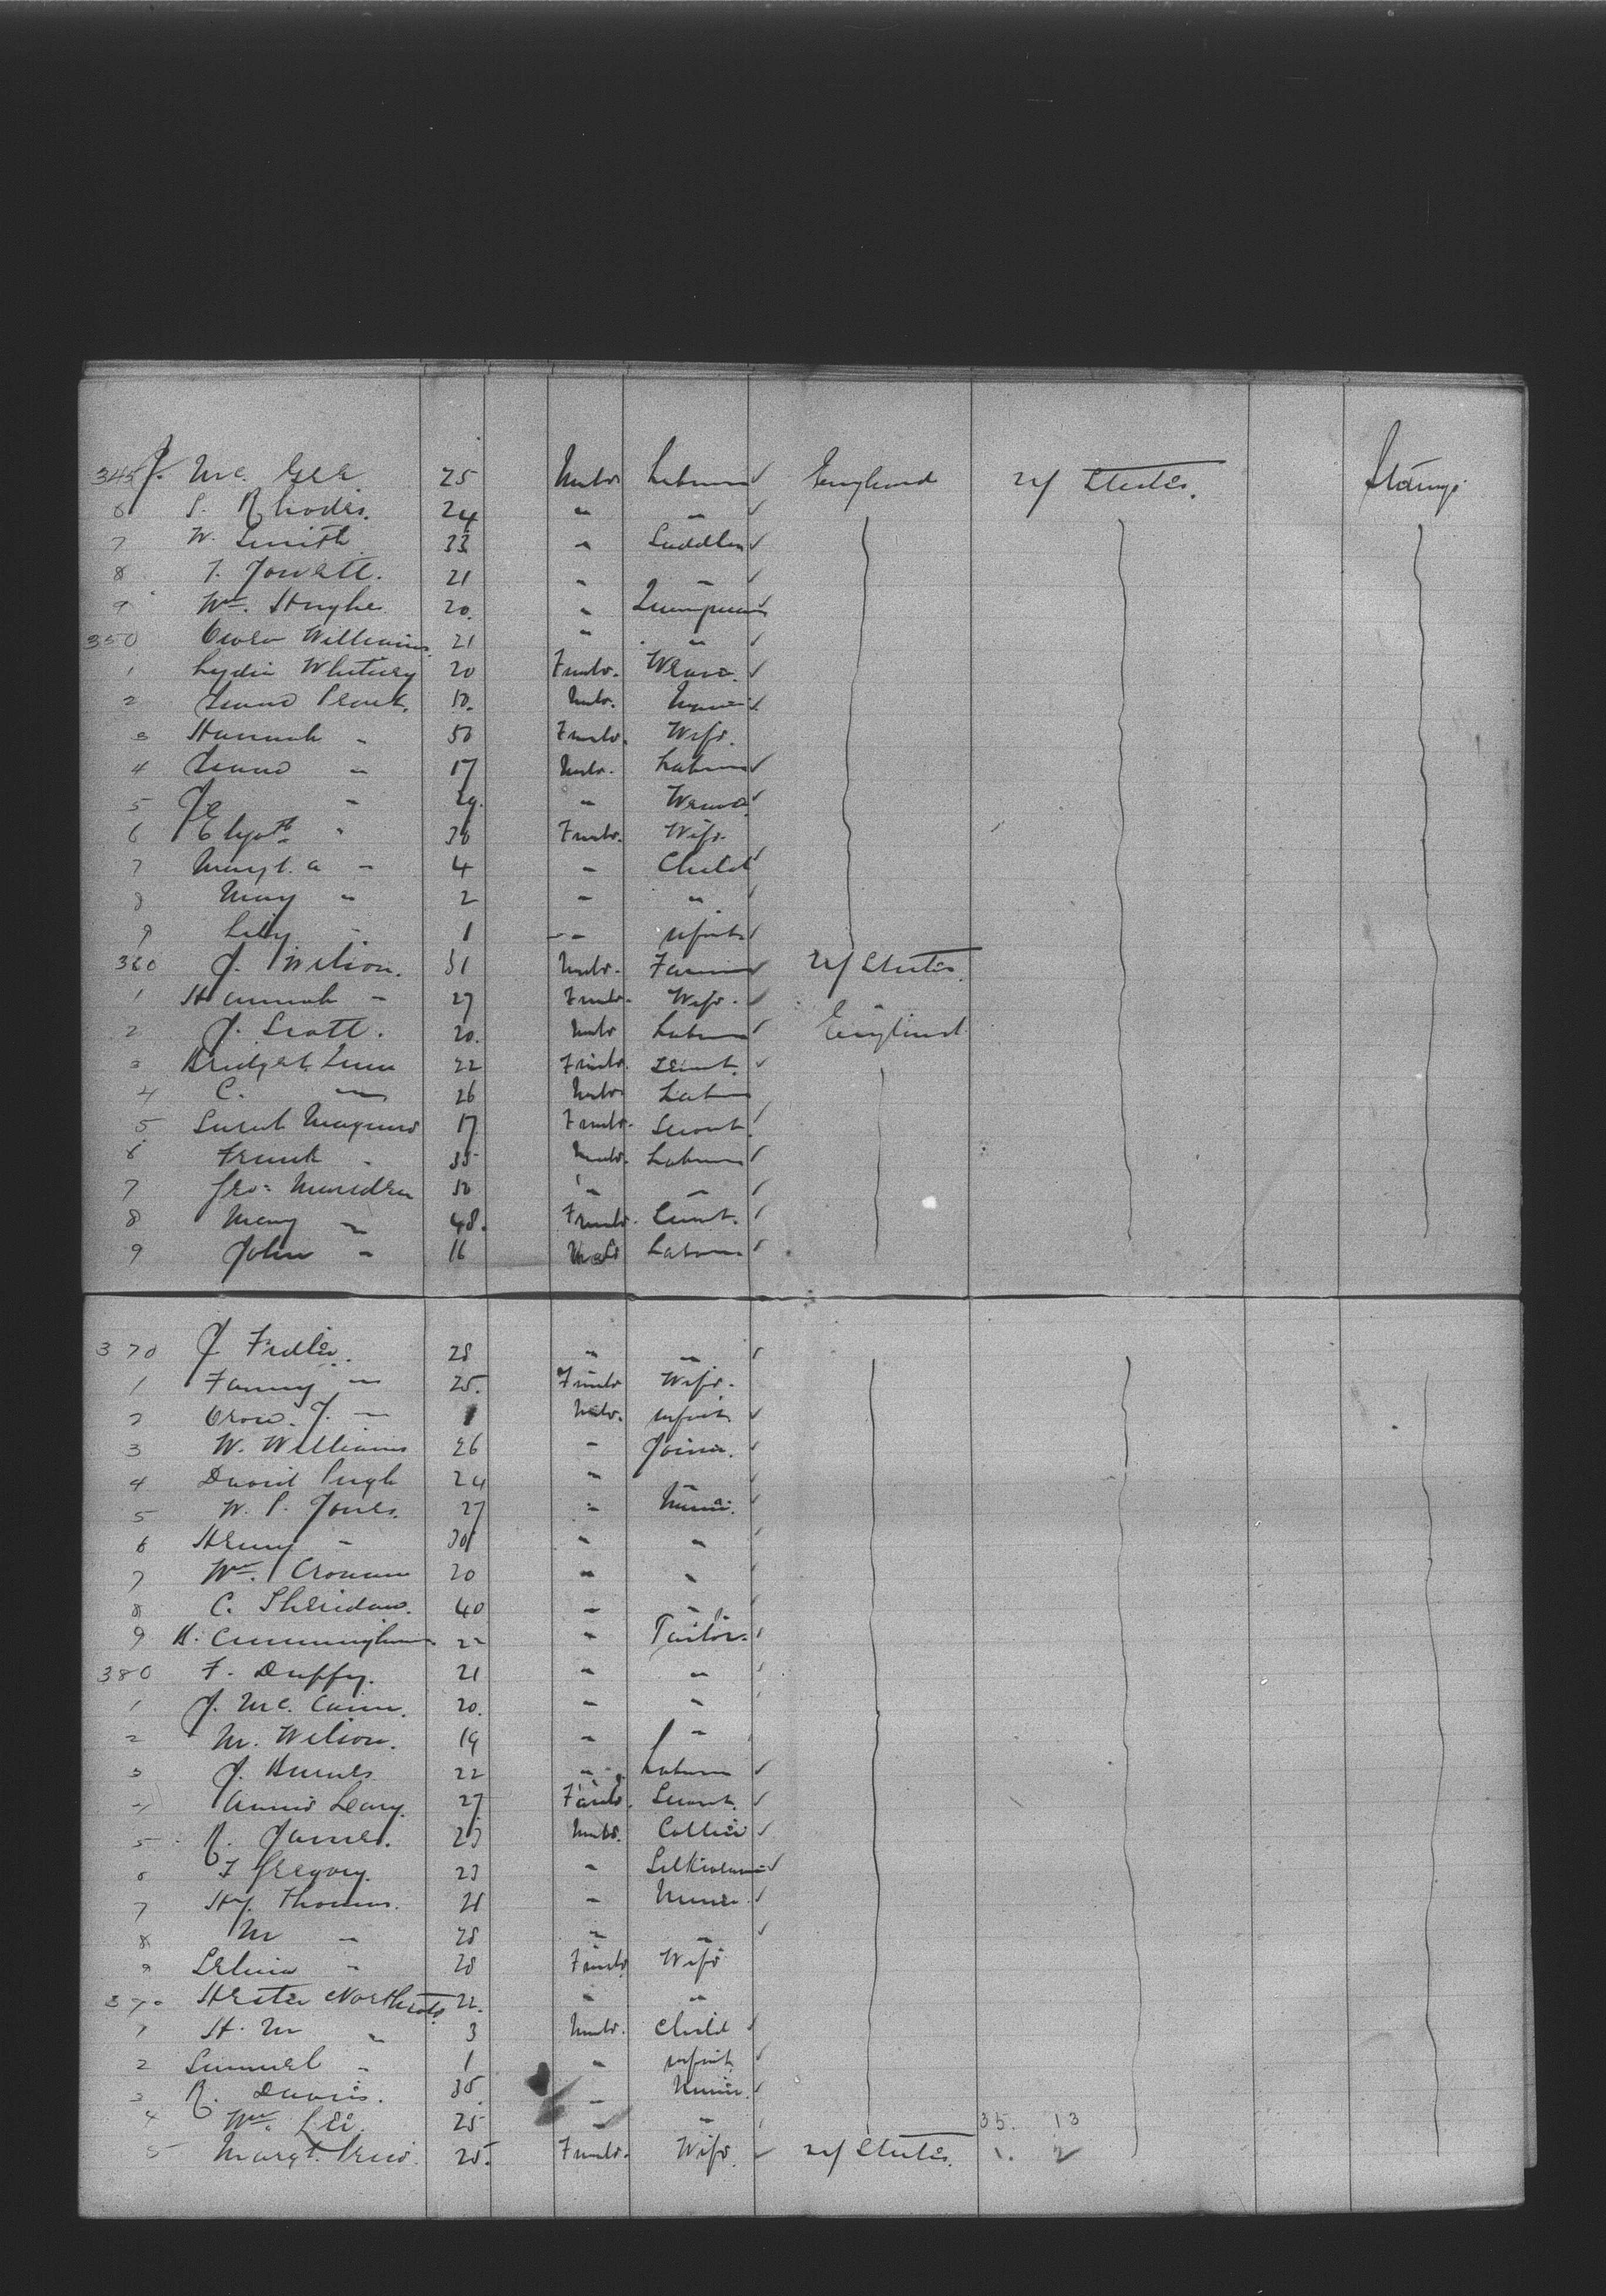 345 J. Mc. Gee 25 Male Labourer ✓ England U/ States. Steerage
6 S. Rhodes. 24 " " ✓
7 W. Smith 33 " Saddler ✓
8 T. Jowett. 21 " " ✓
9 Wm. Hughe 20. " ✓
350 Owen Williams 21 " " ✓
1 Lydia Whitney 20 Female. Weaver. ✓
2 50. Male. ✓
3 Hannah " 50 Female. Wife.
4 " 17 Male. Labourer ✓
5 " 29. " Weaver ✓
6 Elizth " 30 Female. Wife.
7 Maryt. A " 4 " Child ✓
8 May " 2 " " ✓
9 Lily " 1 " Infant ✓
360 J. Wilson. 31 Male. Farmer ✓ U/ States.
1 Hannah " 27 Female. Wife. ✓ "
2 J. Scott. 20. Male Labourer ✓ England
3 Bridget 22 Female. Servt. ✓
4 C. " 26 Male Labourer
5 Sarah 17 Female. Servant. ✓
6 Frank " 35 Male. Labourer ✓
7 Geo. Marsden 50 " " ✓
8 Mary " 48. Female. ✓
9 John " 16 Male Labourer ✓
370 J. Fidler. 28 " " ✓
1 Fanny " 25. Female Wife.
2 J. " 1 Male. Infant ✓
3 W. Williams 26 " Joiner. ✓
4 David Pugh 24 " " ✓
5 W. P. Jones. 27 " Miner. ✓
6 Henry " 30 " " ✓
7 Wm. Cronan 20 " " ✓
8 C. Sheridan. 40 " " ✓
9 H. Cunningham 22 " Tailor. ✓
380 F. Duffy. 21 " " ✓
1 J. Mc. Cann. 20. " " ✓
2 M. Wilson. 19 " "
3 J. Burnes 22 " Labourer ✓
4 Annie Leary. 27 Female. Servant. ✓
5 R. James. 23 Male. Collier ✓
6 F Gregory. 23 " ✓
7 Hy. Thomas. 21 " Miner. ✓
8 M " 28 " " ✓
9 Selina " 28 Female Wife
390 Hester Northcote 22. " "
1 H. M " 3 Male. Child ✓
2 Samuel " 1 " Infant ✓
3 R. Davis. 35. " Miner. ✓
4 Wm. Lee. 25 " " 35. 13
5 Margt. 25. Female. Wife. ✓ U/ States. 1. 2